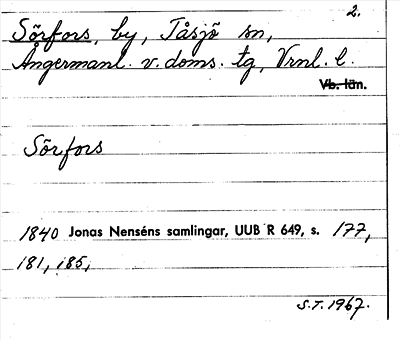 2.
Sörfors, by, Tåsjö sn,
Ångermanl. v. doms. tg, Vrnl. l.
Vb. län.
Sörfors
1840 Jonas Nenséns samlingar, UUB R 649, s. 177,
181, 185,
S.T. 1967.